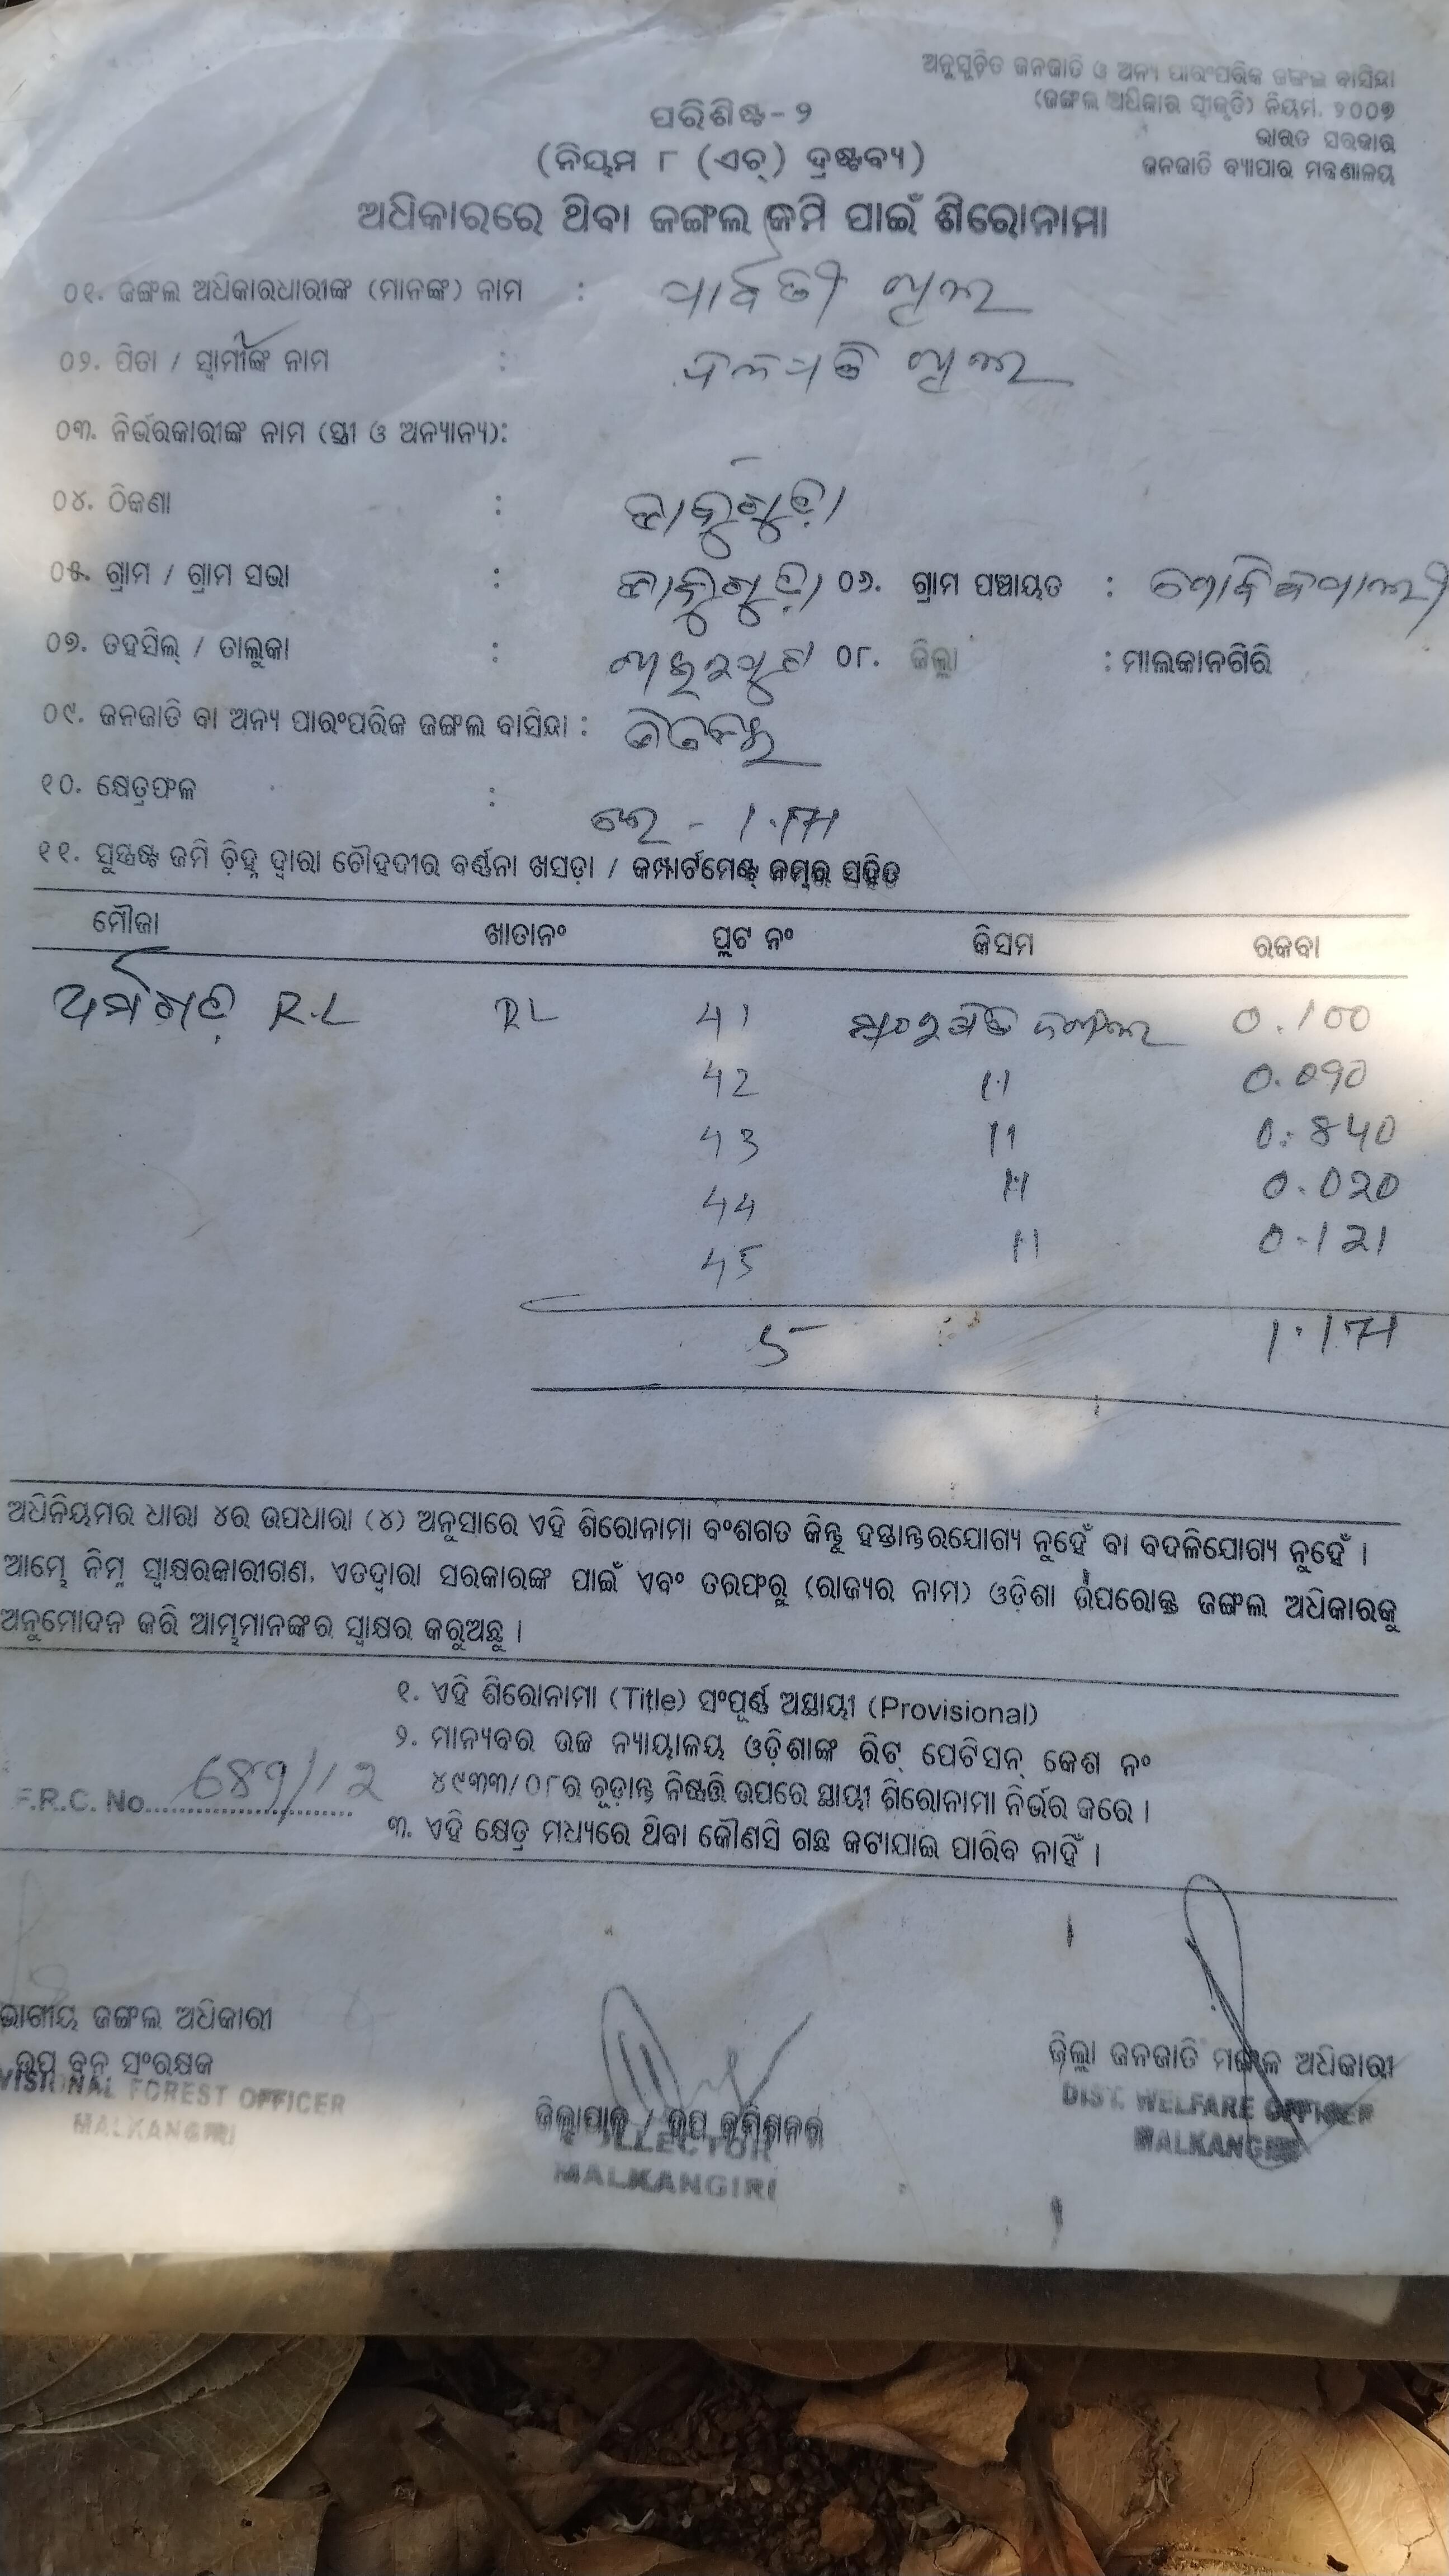 ଅନୁସୂଚିତ ଜନଜାତି ଓ ଅନ୍ୟ ପାରଂପରିକ ଜଙ୍ଗଲ ବାସିନ୍ଦା
(ଜଙ୍ଗଲ ଅଧିକାର ସ୍ୱୀକୃତି) ନିୟମ, ୨୦୦୭
ଭାରତ ସରକାର
ଜନଜାତି ବ୍ୟାପାର ମନ୍ତ୍ରଣାଳୟ
ପରିଶିଷ୍ଟ-୨
(ନିୟମ ୮ (ଏଚ୍) ଦ୍ରଷ୍ଟବ୍ୟ)
ଅଧିକାରରେ ଥିବା ଜଙ୍ଗଲ ଜମି ପାଇଁ ଶିରୋନାମା
୦୧. ଜଙ୍ଗଲ ଅଧିକାରଧାରୀଙ୍କ (ମାନଙ୍କ) ନାମ : ପାର୍ବତୀ
୦୨. ପିତା / ସ୍ୱାମୀଙ୍କ ନାମ :
୦୩. ନିର୍ଭରକାରୀଙ୍କ ନାମ (ସ୍ତ୍ରୀ ଓ ଅନ୍ୟାନ୍ୟ):
୦୪. ଠିକଣା :
୦୫. ଗ୍ରାମ / ଗ୍ରାମ ସଭା : ୦୬. ଗ୍ରାମ ପଞ୍ଚାୟତ :
୦୭. ତହସିଲ୍ / ତାଲୁକା : ୦୮. ଜିଲ୍ଲା : ମାଲକାନଗିରି
୦୯. ଜନଜାତି ବା ଅନ୍ୟ ପାରଂପରିକ ଜଙ୍ଗଲ ବାସିନ୍ଦା :
୧୦. କ୍ଷେତ୍ରଫଳ : - 1.171
୧୧. ସୁସ୍ପଷ୍ଟ ଜମି ଚ଼ିହ୍ନ ଦ୍ୱାରା ଚୌହଦୀର ବର୍ଣ୍ଣନା ଖସଡ଼ା / କମ୍ପାର୍ଟମେଣ୍ଟ୍ ନମ୍ବର ସହିତ
ମୌଜା ଖାତାନଂ ପ୍ଲଟ ନଂ କିସମ ରକବା
R.L RL 41 0.100
42 11 0.090
43 11 0.840
44 11 0.020
45 11 0.121
5 1.171
ଅଧିନିୟମର ଧାରା ୪ର ଉପଧାରା (୪) ଅନୁସାରେ ଏହି ଶିରୋନାମା ବଂଶଗତ କିନ୍ତୁ ହସ୍ତାନ୍ତରଯୋଗ୍ୟ ନୁହେଁ ବା ବଦଳିଯୋଗ୍ୟ ନୁହେଁ ।
ଆମ୍ଭେ ନିମ୍ନ ସ୍ୱାକ୍ଷରକାରୀଗଣ, ଏତଦ୍ୱାରା ସରକାରଙ୍କ ପାଇଁ ଏବଂ ତରଫରୁ (ରାଜ୍ୟର ନାମ) ଓଡ଼ିଶା ଉପରୋକ୍ତ ଜଙ୍ଗଲ ଅଧିକାରକୁ
ଅନୁମୋଦନ କରି ଆମ୍ଭମାନଙ୍କର ସ୍ୱାକ୍ଷର କରୁଅଛୁ ।
୧. ଏହି ଶିରୋନାମା (Title) ସଂପୂର୍ଣ୍ଣ ଅସ୍ଥାୟୀ (Provisional)
୨. ମାନ୍ୟବର ଉଚ୍ଚ ନ୍ୟାୟାଳୟ ଓଡ଼ିଶାଙ୍କ ରିଟ୍ ପେଟିସନ୍ କେଶ ନଂ
୪୯୩୩/୦୮ର ଚୂଡ଼ାନ୍ତ ନିଷ୍ପତ୍ତି ଉପରେ ସ୍ଥାୟୀ ଶିରୋନାମା ନିର୍ଭର କରେ ।
F.R.C. No.
୩. ଏହି କ୍ଷେତ୍ର ମଧ୍ୟରେ ଥିବା କୌଣସି ଗଛ କଟାଯାଇ ପାରିବ ନାହିଁ ।
ଭାଗୀୟ ଜଙ୍ଗଲ ଅଧିକାରୀ
ଉପ ବନ ସଂରକ୍ଷକ
VISIONAL FOREST OFFICER
MALKANGIRI
ଜିଲ୍ଲାପାଳ / ଉପ କମିଶନର
COLLECTOR
MALKANGIRI
ଜିଲ୍ଲା ଜନଜାତି ମଙ୍ଗଳ ଅଧିକାରୀ
DIST. WELFARE OFFICER
MALKANGIRI